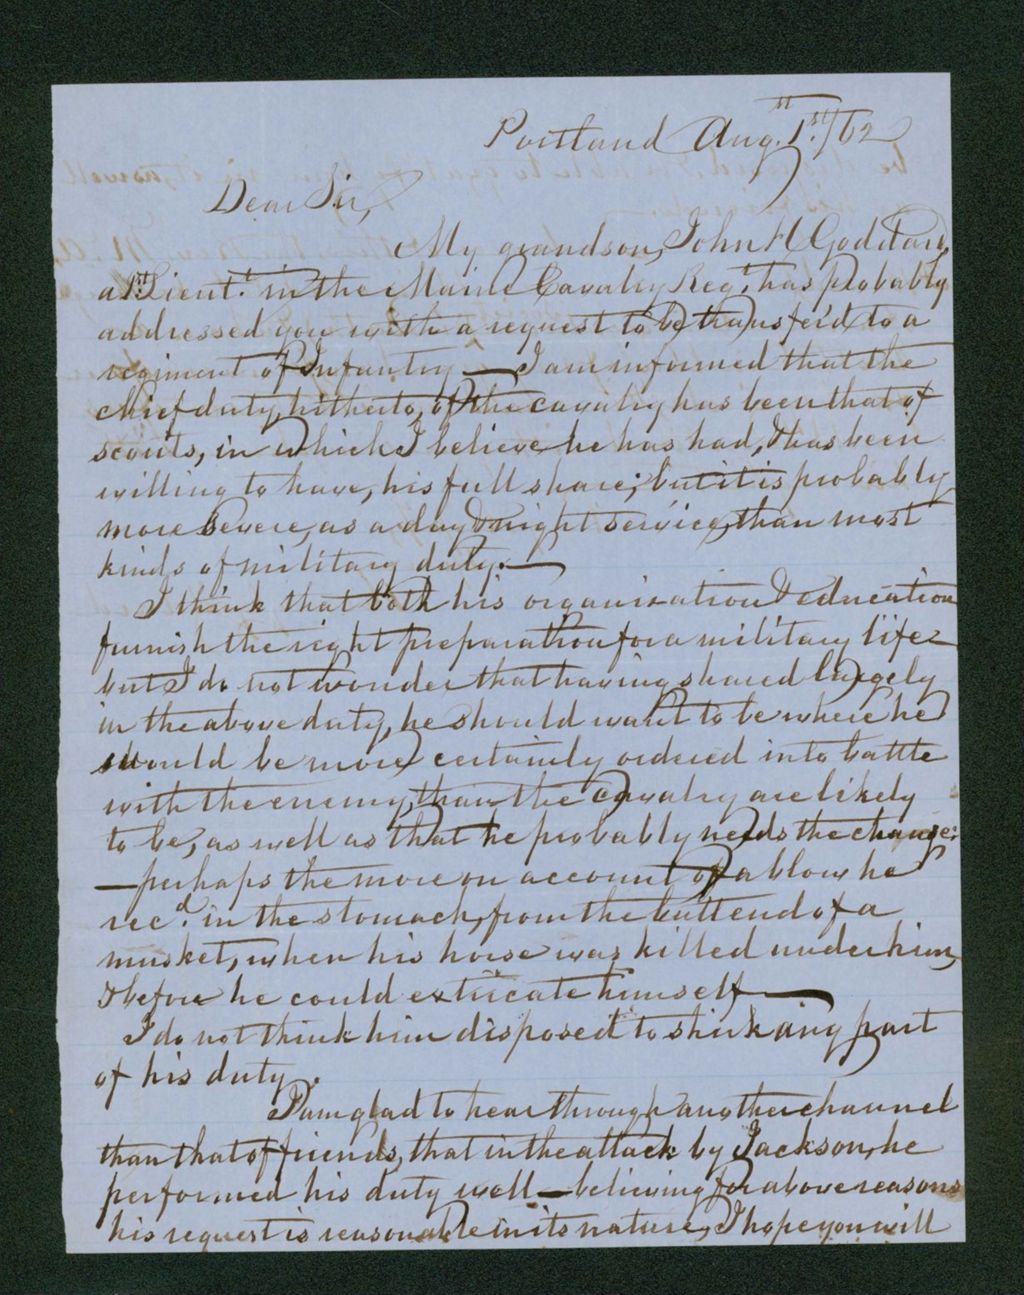 Portland Aug. 1st./62
Dear Sir,
My grandson, John H Goddard,
a 1st Lieut. in the Maine Cavalry Reg.t has probably
addressed you with a request to be transfer'd to a
regiment of Infantry — I am informed that the
chief duty, hitherto, of the cavalry has been that of
scouts, in which I believe he has had, & has been
willing to have, his full share; but it is probably
more severe, as a day & night service, than most
kinds of military duty. —
I think that both his organization & education
furnish the right preparation for a military life
but I do not wonder that having shared largely
in the above duty, he should want to be where he
would be more certainly ordered into battle
with the enemy, than the cavalry are likely
to be, as well as that he probably needs the change:
— perhaps the more on account of a blow he
rec.d in the stomach, from the butt end of a
musket, when his horse was killed under him,
& before he could extricate himself —
I do not think him disposed to shirk any part
of his duty.
I am glad to hear through another channel
than that of friends, that in the attack by Jackson, he
performed his duty well — believing for above reasons
his request is reasonable in its nature, I hope you will